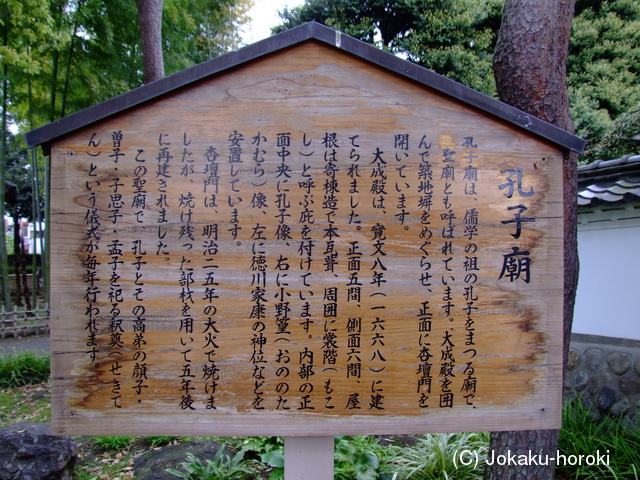 孔子廟
孔子廟は、儒学の祖の孔子をまつる廟で、
聖廟とも呼ばれています。大成殿を囲
んで築地塀をめぐらせ、正面に杏壇門を
開いています。
大成殿は、寛文八年(一六六八)に建
てられました。正面五間、側面六間、屋
根は寄棟造で本瓦葺、周囲に裳階(もこ
し)と呼ぶ庇を付けています。内部の正
面中央に孔子像、右に小野篁(おののた
かむら)像、左に徳川家康の神位などを
安置しています。
杏壇門は、明治二五年の大火で焼けま
したが、焼け残った部材を用いて五年後
に再建されました。
この聖廟で、孔子とその高弟の顔子・
曽子・子思子・孟子を祀る釈奠(せきて
ん)という儀式が毎年行われます。
(C) Jokaku-horoki